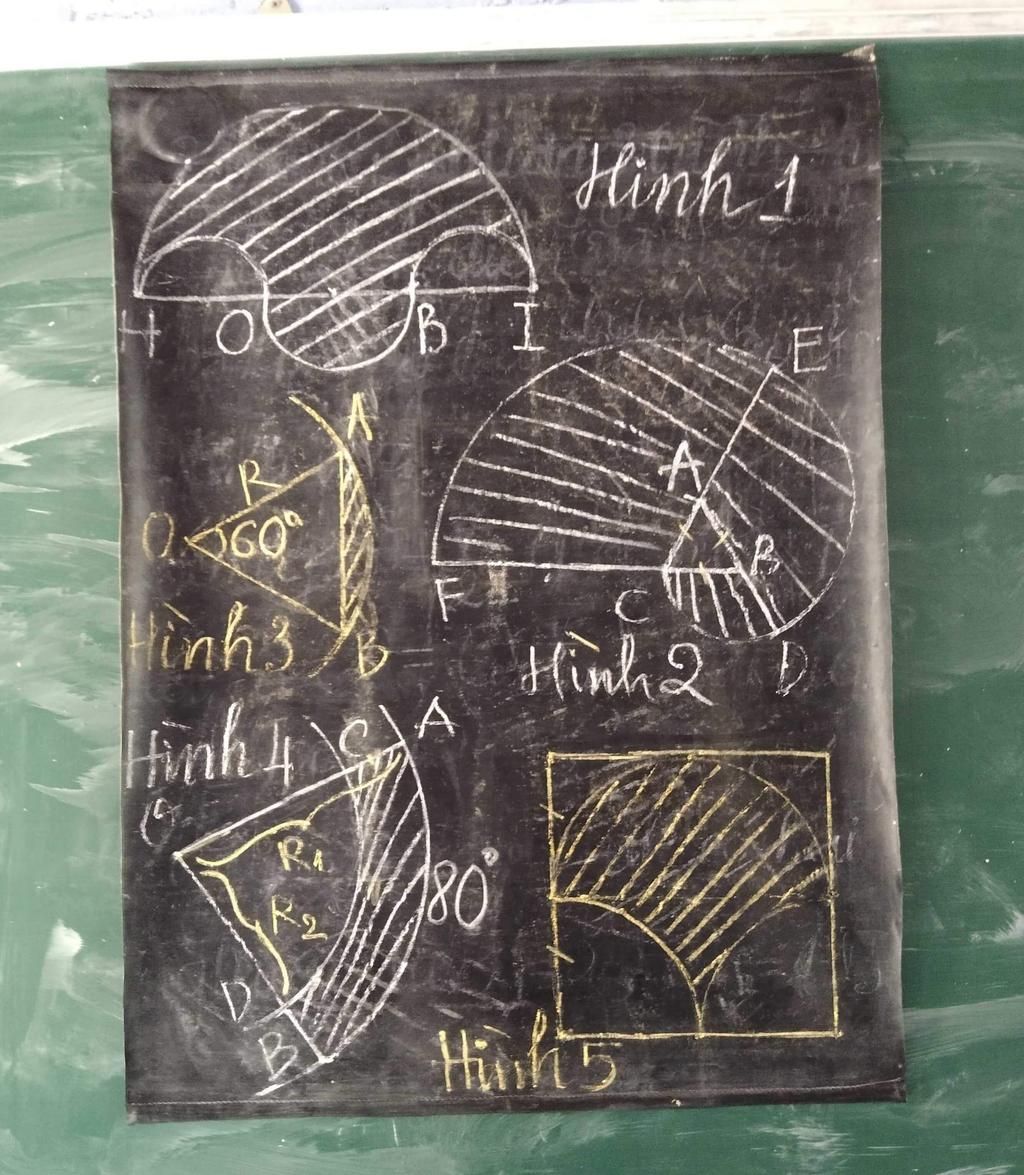 Hình 1
H O B I
E
A
B
F
C
D
Hình 2
A
R
O 60°
B
Hình 3
Hình 4
C A
O
R1
R2
80°
D
B
Hình 5